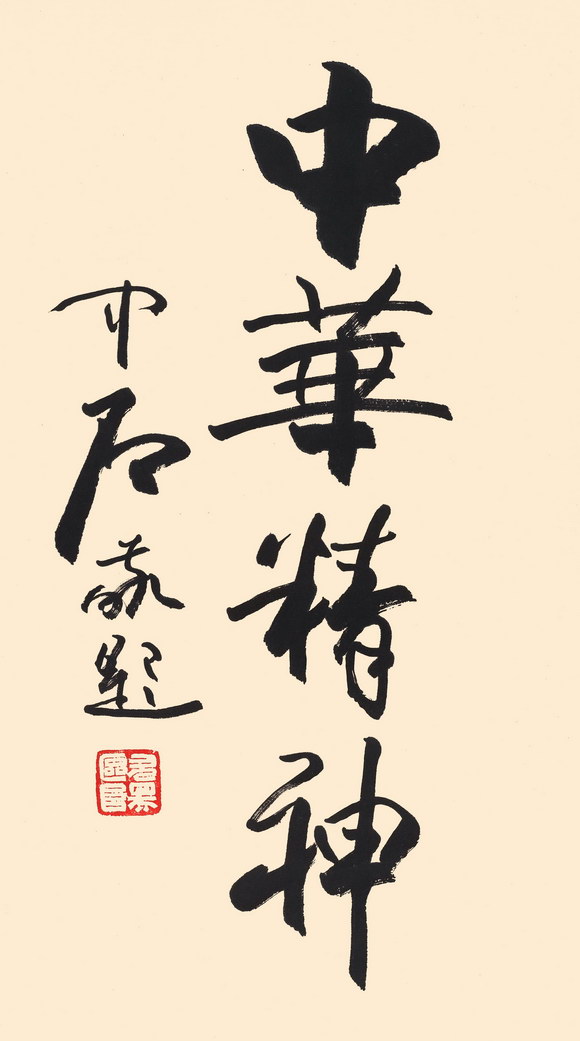 中華精神
中石敬題